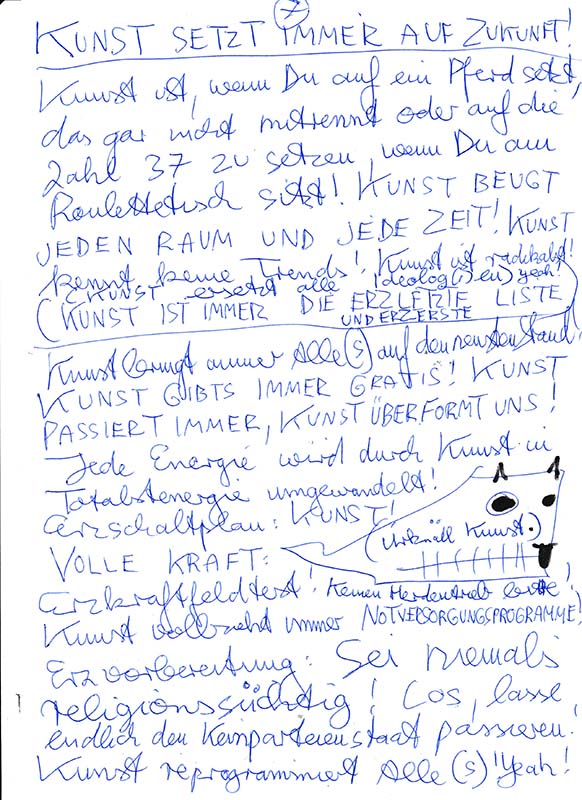 7
KUNST SETZT IMMER AUF ZUKUNFT!
Kunst ist, wenn Du auf ein Pferd setzt,
das gar nicht mitrennt oder auf die
Zahl 37 zu setzen, wenn Du am
Roulettetisch sitzt! KUNST BEUGT
JEDEN RAUM UND JEDE ZEIT! KUNST
kennt keine Trends! Kunst ist radikalst!
KUNST ersetzt alle Ideolog(i)en yeah!
(KUNST IST IMMER DIE ERZLETZTE LISTE
UND ERZERSTE
Kunst bringt immer Alle(s) auf den neusten Stand!
KUNST GIBTS IMMER GRATIS! KUNST
PASSIERT IMMER, KUNST ÜBERFORMT UNS!
Jede Energie wird durch Kunst in
Totalstenergie umgewandelt!
Erzschaltplan: KUNST!
(Urknall Kunst.)
VOLLE KRAFT:
Erzkraftfeldtest! Keinen Herdentrieb bitte!
Kunst vollzieht immer NOTVERSORGUNGSPROGRAMME!
Erzvorbereitung: Sei niemals
religionssüchtig! Los, lasse
endlich den Keinparteienstaat passieren!
Kunst reprogrammiert Alle(s) yeah!